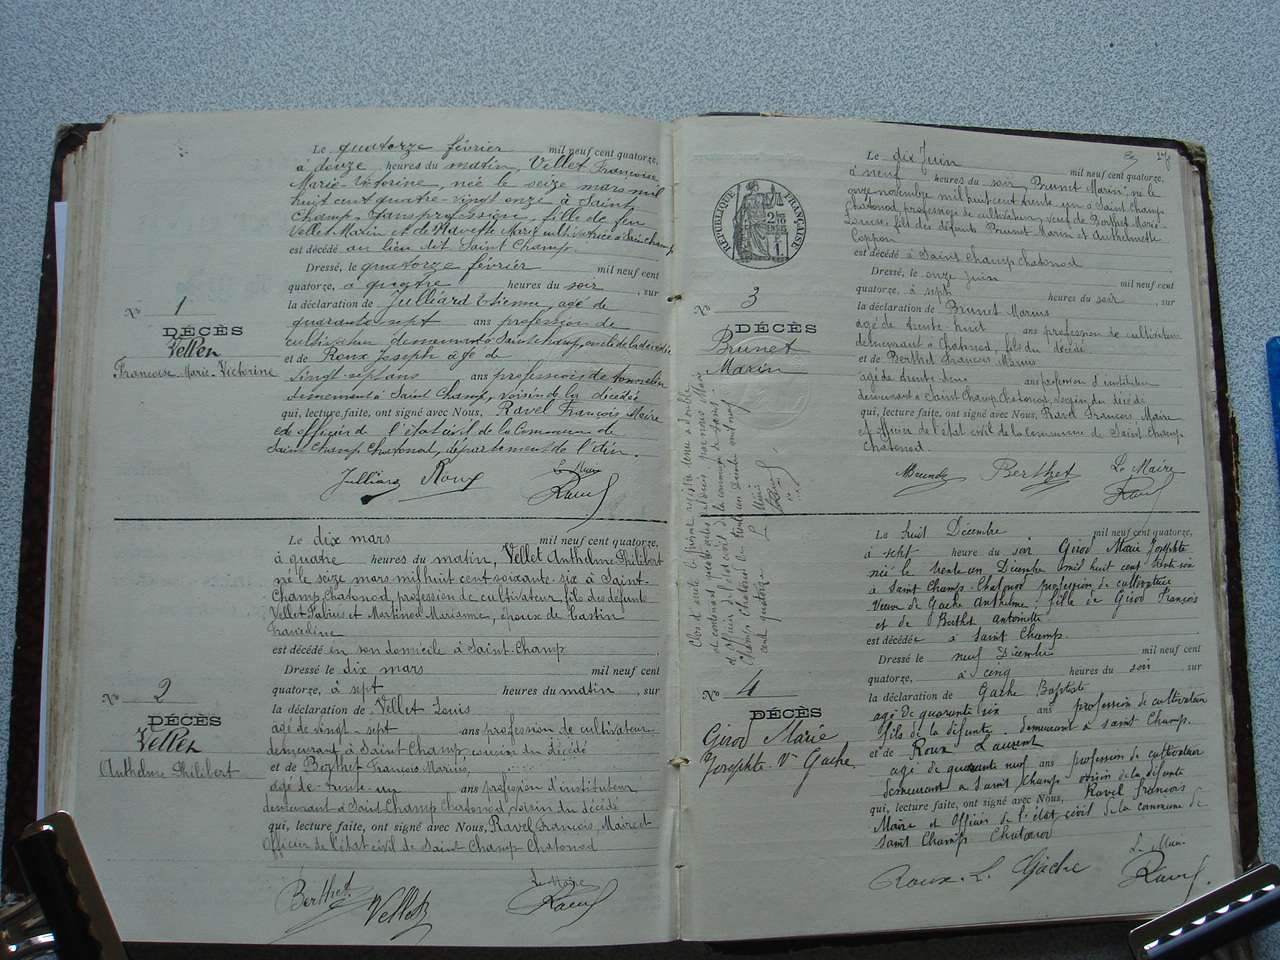 Le quatorze février mil neuf cent quatorze,
à douze heures du matin, Vellet Françoise
Marie-Victorine, née le seize mars mil
huit cent quatre-vingt onze à Saint
Champ sans profession, fille de feu
Vellet Marin et de Marie cultivatrice à Saint Champ
est décédé au lieu dit Saint Champ.
Dressé, le quatorze février mil neuf cent
quatorze, à quatre heures du soir, sur
la déclaration de Julliard Etienne, agé de
quarante sept ans profession de
cultivateur demeurant à Saint Champ, oncle de la décédée
et de Roux Joseph âgé de
vingt-sept ans ans profession de tonnelier
demeurant à Saint Champ, voisin de la décédée
qui, lecture faite, ont signé avec Nous, Ravel François Maire
et officier de l'état civil de la Commune de
Saint Champ Chatonod, département de l'Ain.
Julliard Roux Le Maire
Ravel
No 1
DÉCÈS
Vellet
Françoise-Marie-Victorine
Le dix mars mil neuf cent quatorze,
à quatre heures du matin, Vellet Anthelme Philibert
né le seize mars mil huit cent soixante-six à Saint-
Champ Chatonod, profession de cultivateur, fils des défunts
Vellet Fabius et Martinod Marianne, époux de Castin
Franceline
est décédé en son domicile à Saint-Champ
Dressé le dix mars mil neuf cent
quatorze, à sept heures du matin, sur
la déclaration de Vellet Louis
agé de vingt-sept ans profession de cultivateur
demeurant à Saint Champ cousin du décédé
et de Berthet François Marius,
âgé de trente-un ans profession d'instituteur
demeurant à Saint Champ Chatonod, voisin du décédé
qui, lecture faite, ont signé avec Nous, Ravel François, Maire et
Officier de l'état civil de Saint Champ Chatonod
Berthet Vellet Le Maire
Ravel
No 2
DÉCÈS
Vellet
Anthelme Philibert
RÉPUBLIQUE FRANÇAISE
Le dix Juin mil neuf cent quatorze,
à neuf heures du soir, Brunet Marin, né le
onze novembre mil huit cent trente un à Saint Champ
Chatonod, profession de cultivateur, veuf de Berthet Marie
Louise, fils des défunts Brunet Marin et Anthelmette
Coppon
est décédé à Saint Champ Chatonod
Dressé, le onze Juin mil neuf cent
quatorze, à sept heures du soir, sur
la déclaration de Brunet Marius
agé de trente-huit ans profession de cultivateur
demeurant à Chatonod, fils du décédé
et de Berthet François Marius
âgé de trente-deux ans profession d'instituteur
demeurant à Saint Champ Chatonod, voisin du décédé
qui, lecture faite, ont signé avec Nous, Ravel François, Maire
et officier de l'état civil de la commune de Saint Champ
Chatonod.
MBrunet Berthet Le Maire
Ravel
No 3
DÉCÈS
Brunet
Marin
Clos et arrêté le présent registre tenu en double
et contenant quatre actes de décès, par nous Maire
et Officier de l'état civil de la commune de Saint
Champ Chatonod le trente un Décembre mil neuf
cent quatorze Le Maire
Ravel
Le huit Décembre mil neuf cent quatorze,
à sept heure du soir Girod Marie Josephte
née le trente un Décembre mil huit cent trente six
à Saint Champ Chatonod profession de cultivatrice
Veuve de Gache Anthelme, fille de Girod François
et de Berthet Antoinette
est décédée à Saint Champ.
Dressé le neuf Décembre mil neuf cent
quatorze, à cinq heures du soir, sur
la déclaration de Gache Baptiste
agé de quarante six ans profession de cultivateur
fils de la défunte, demeurant à Saint Champ.
et de Roux Laurent
agé de quarante neuf ans profession de cultivateur
demeurant à Saint Champ voisin de la défunte
qui, lecture faite, ont signé avec Nous, Ravel François
Maire et Officier de l'état civil de la commune de
Saint Champ Chatonod
Roux. L. Gache Le Maire
Ravel.
No 4
DÉCÈS
Girod Marie
Josephte Ve Gache